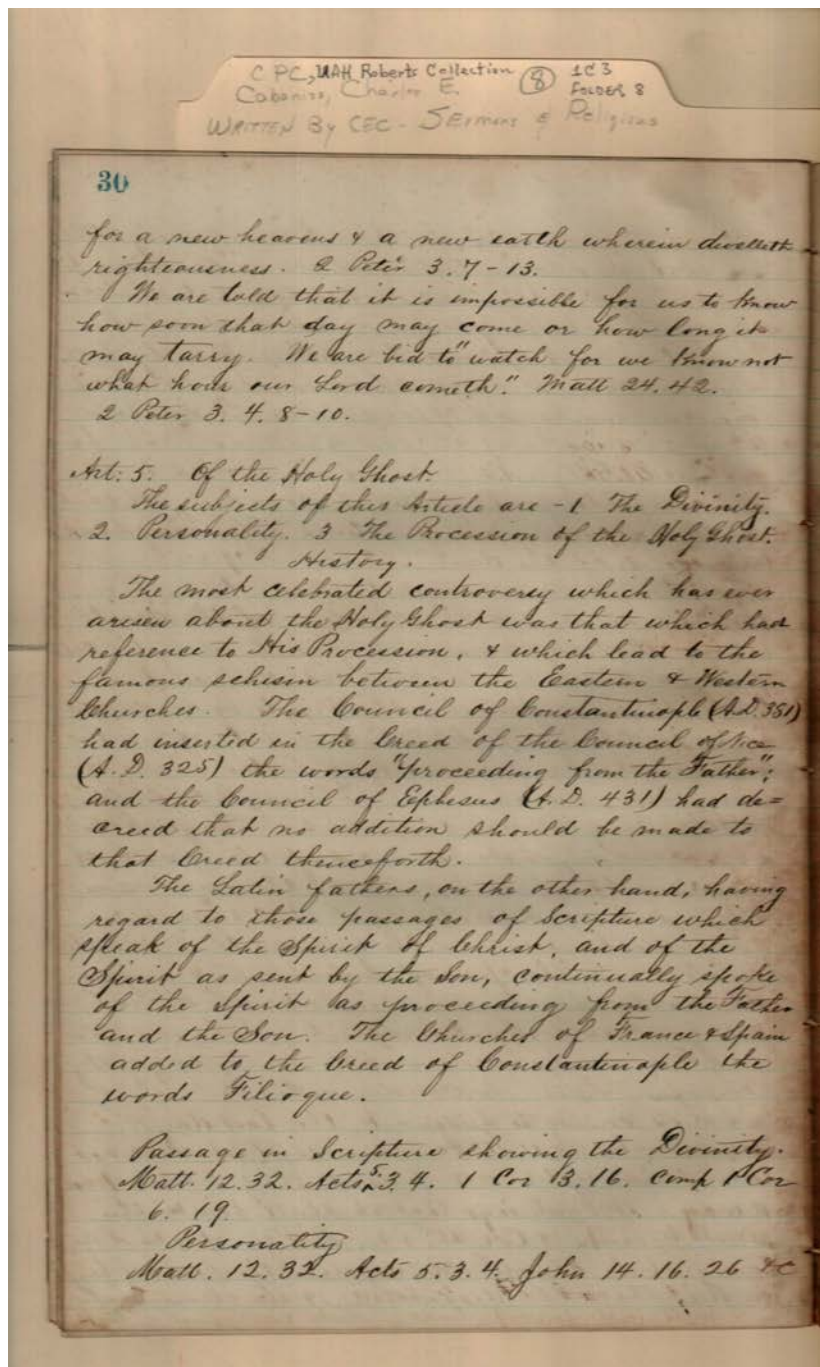 CPC, UAH Roberts Collection (8) 1C3
Cabaniss, Charles E. FOLDER 8
WRITTEN By CEC - Sermons & Religious
30
for a new heavens & a new earth wherein dwelleth
righteousness. 2 Peter 3. 7-13.
We are told that it is impossible for us to know
how soon that day may come or how long it
may tarry. We are bid to "watch for we know not
what hour our Lord cometh". Matt 24. 42.
2 Peter 3. 4. 8-10.
Art: 5. Of the Holy Ghost.
The subjects of this Article are - 1 The Divinity.
2. Personality. 3 The Procession of the Holy Ghost.
History.
The most celebrated controversy which has ever
arisen about the Holy Ghost was that which had
reference to His Procession, & which lead to the
famous schism between the Eastern & Western
Churches. The Council of Constantinople (A.D. 381)
had inserted in the Creed of the Council of Nice
(A.D. 325) the words "proceeding from the Father";
and the Council of Ephesus (A.D. 431) had de=
creed that no addition should be made to
that Creed thenceforth.
The Latin fathers, on the other hand, having
regard to those passages of Scripture which
speak of the Spirit of Christ, and of the
Spirit as sent by the Son, continually spoke
of the Spirit as proceeding from the Father
and the Son. The Churches of France & Spain
added to the Creed of Constantinople the
words Filioque.
Passage in Scripture showing the Divinity.
Matt. 12. 32. Acts 5. 3. 4. 1 Cor 3. 16. comp 1 Cor
6. 19.
Personality
Matt. 12. 32. Acts 5. 3. 4. John 14. 16. 26 &c